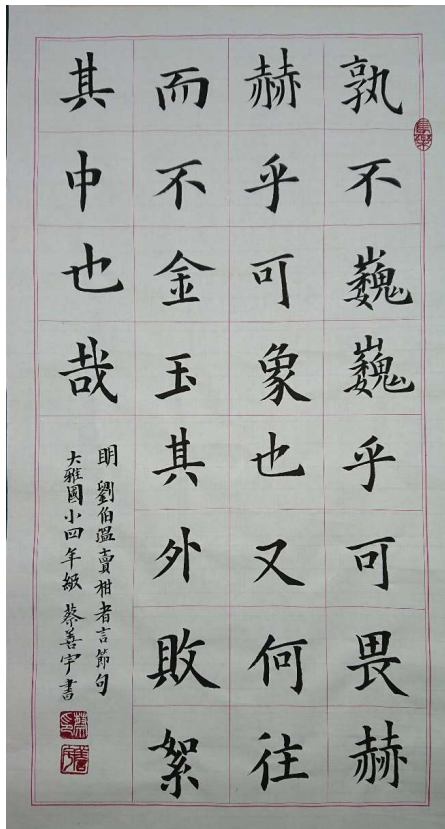 孰不巍巍乎可畏赫
赫乎可象也又何往
而不金玉其外敗絮
其中也哉
明劉伯溫賣柑者言節句
大雅國小四年級蔡善宇書